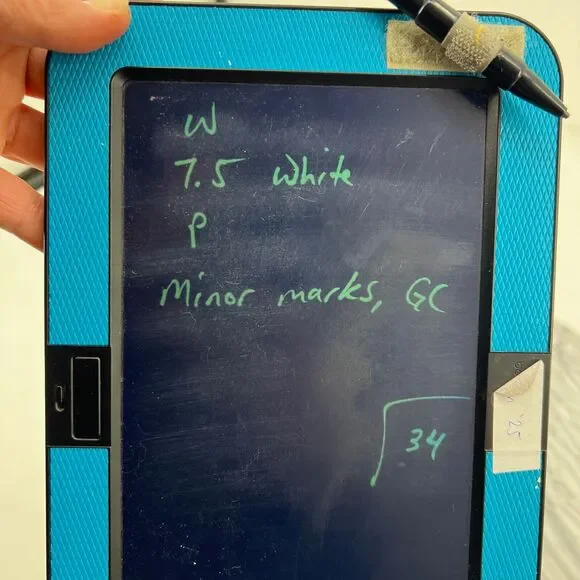 W
7.5 White
P
Minor marks, GC
34
'25